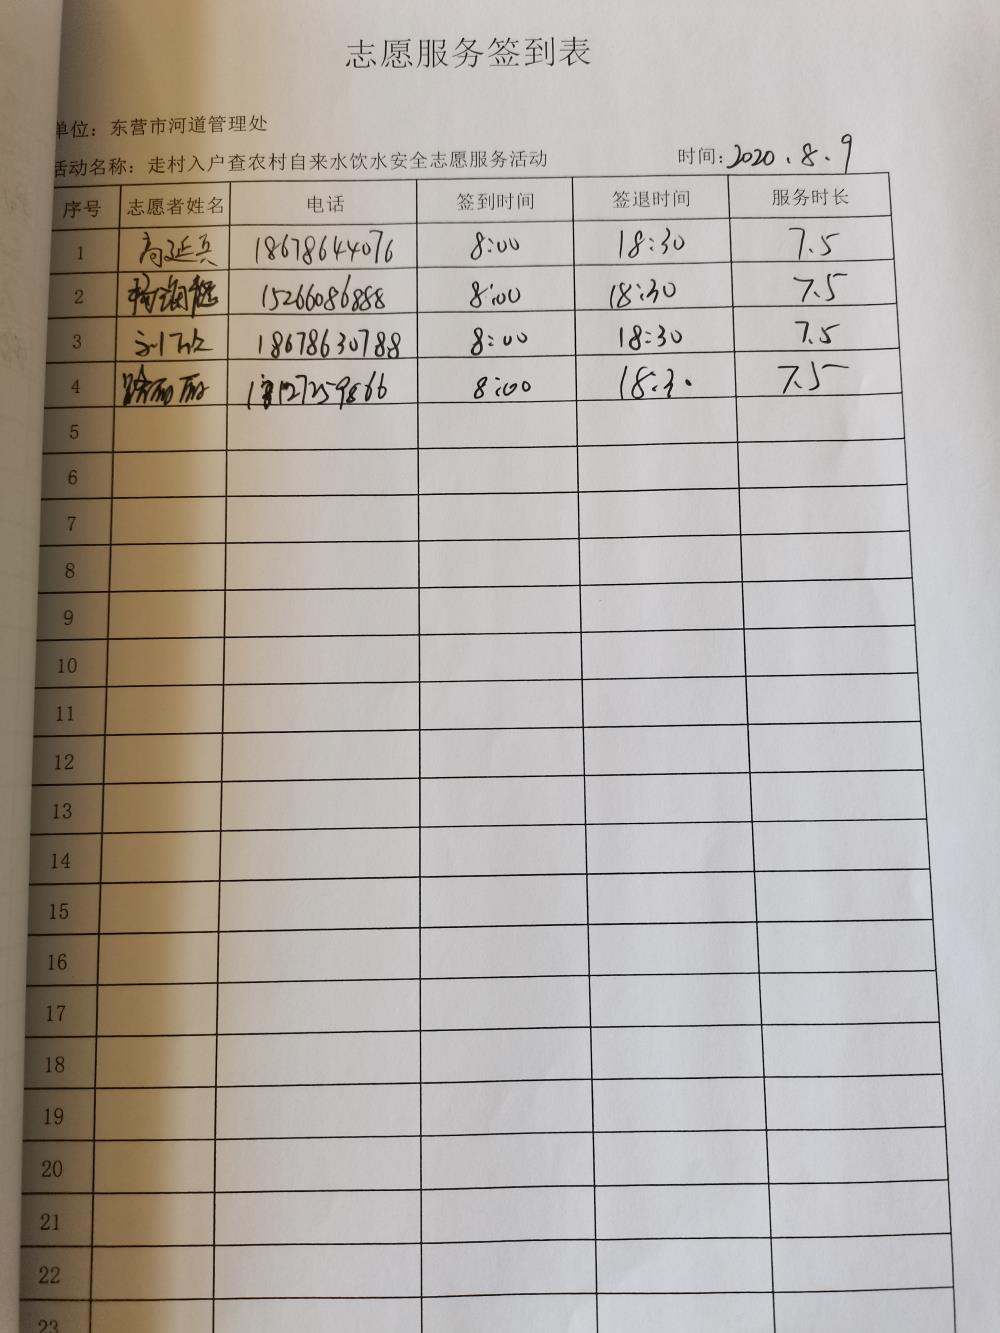 志愿服务签到表
单位：东营市河道管理处
活动名称：走村入户查农村自来水饮水安全志愿服务活动 时间：2020.8.9
序号 志愿者姓名 电话 签到时间 签退时间 服务时长
1 高延兵 18678644076 8:00 18:30 7.5
2 15266086888 8:00 18:30 7.5
3 刘欣 18678630788 8:00 18:30 7.5
4 8:00 18:30 7.5
5
6
7
8
9
10
11
12
13
14
15
16
17
18
19
20
21
22
23